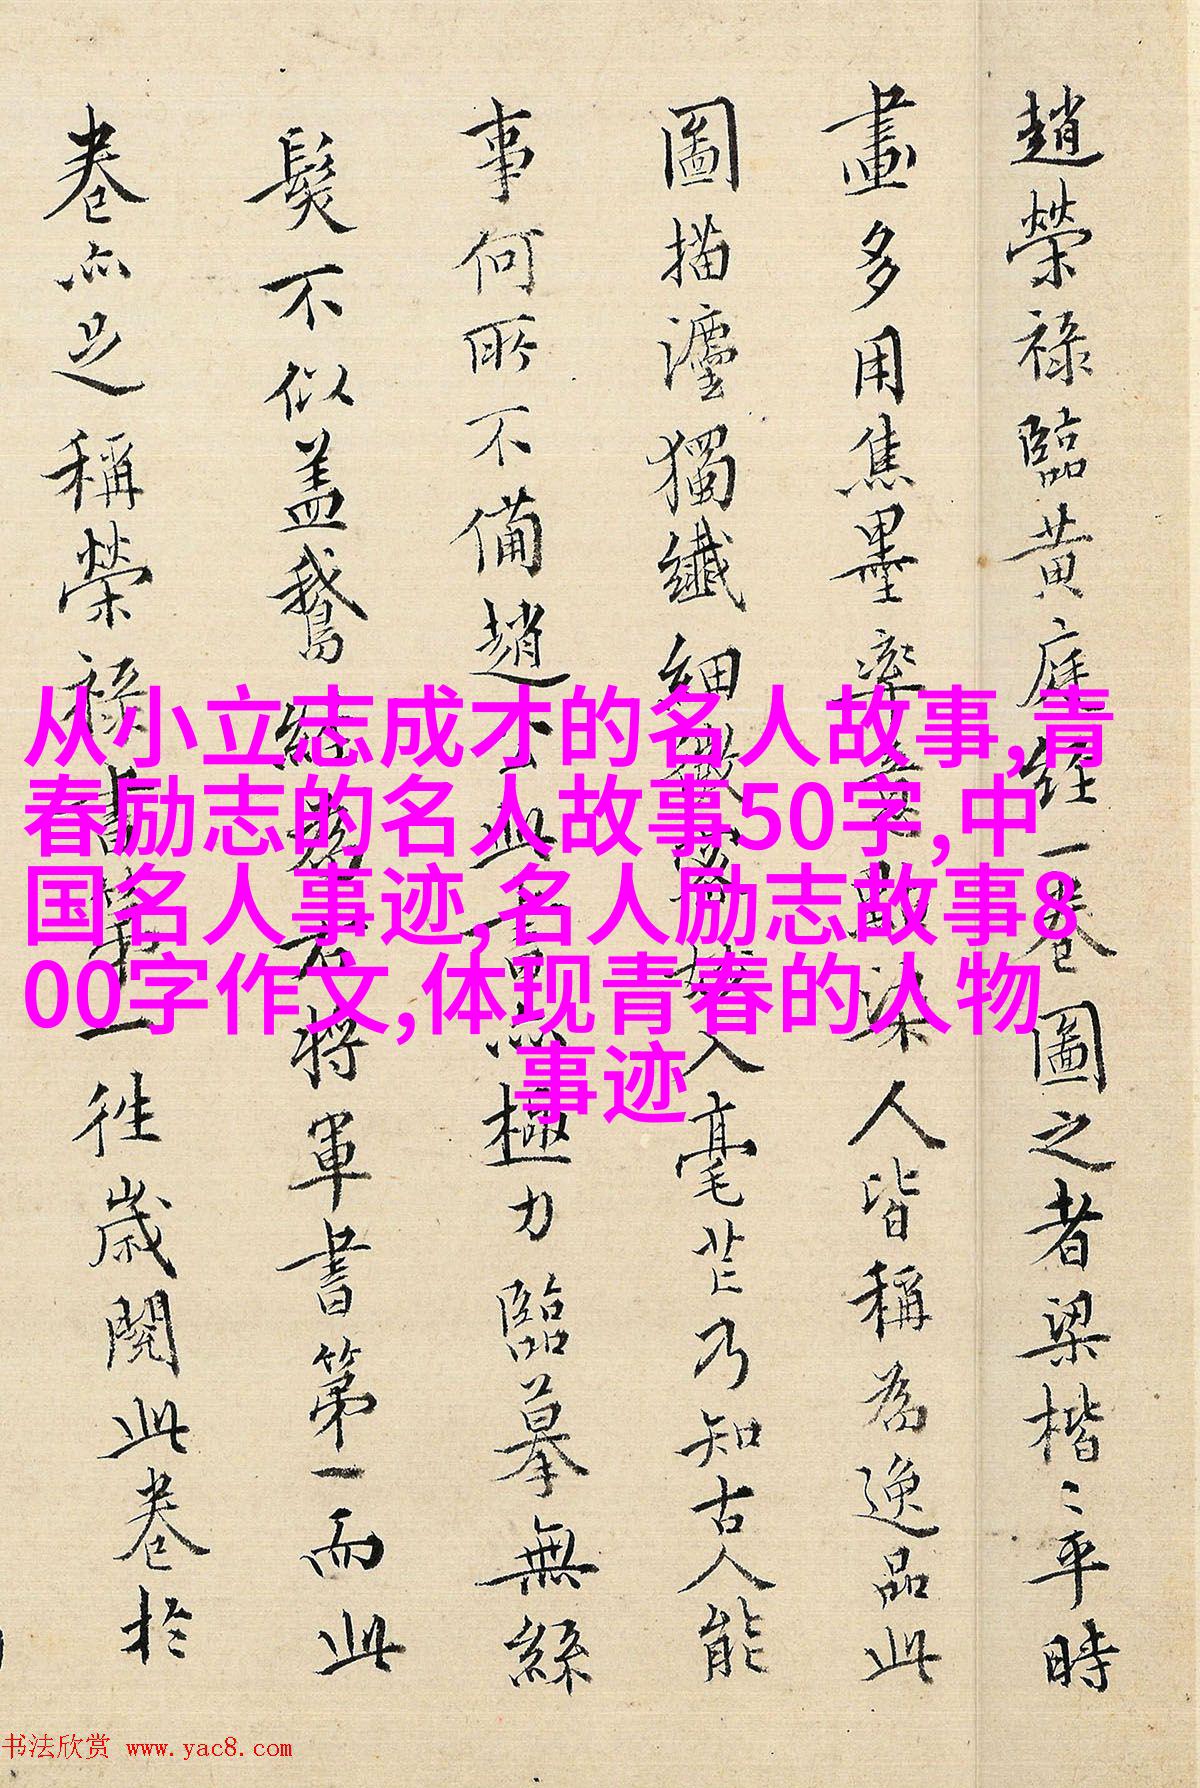 趙榮祿臨黃庭經一卷圖之者梁楷〻平時
畫多用焦墨率意數染人皆稱為逸品此
圖描瀍獨纖細微密入毫芒乃知古人能
事何所不備趙此書亦極力臨摹無絲
髮不似蓋鵝經為右將軍書第一而此
卷亦足稱榮祿書第一往歲閱此卷於
从小立志成才的名人故事,青
春励志的名人故事50字,中
国名人事迹,名人励志故事8
00字作文,体现青春的人物
事迹
书法欣赏 www.yac8.com